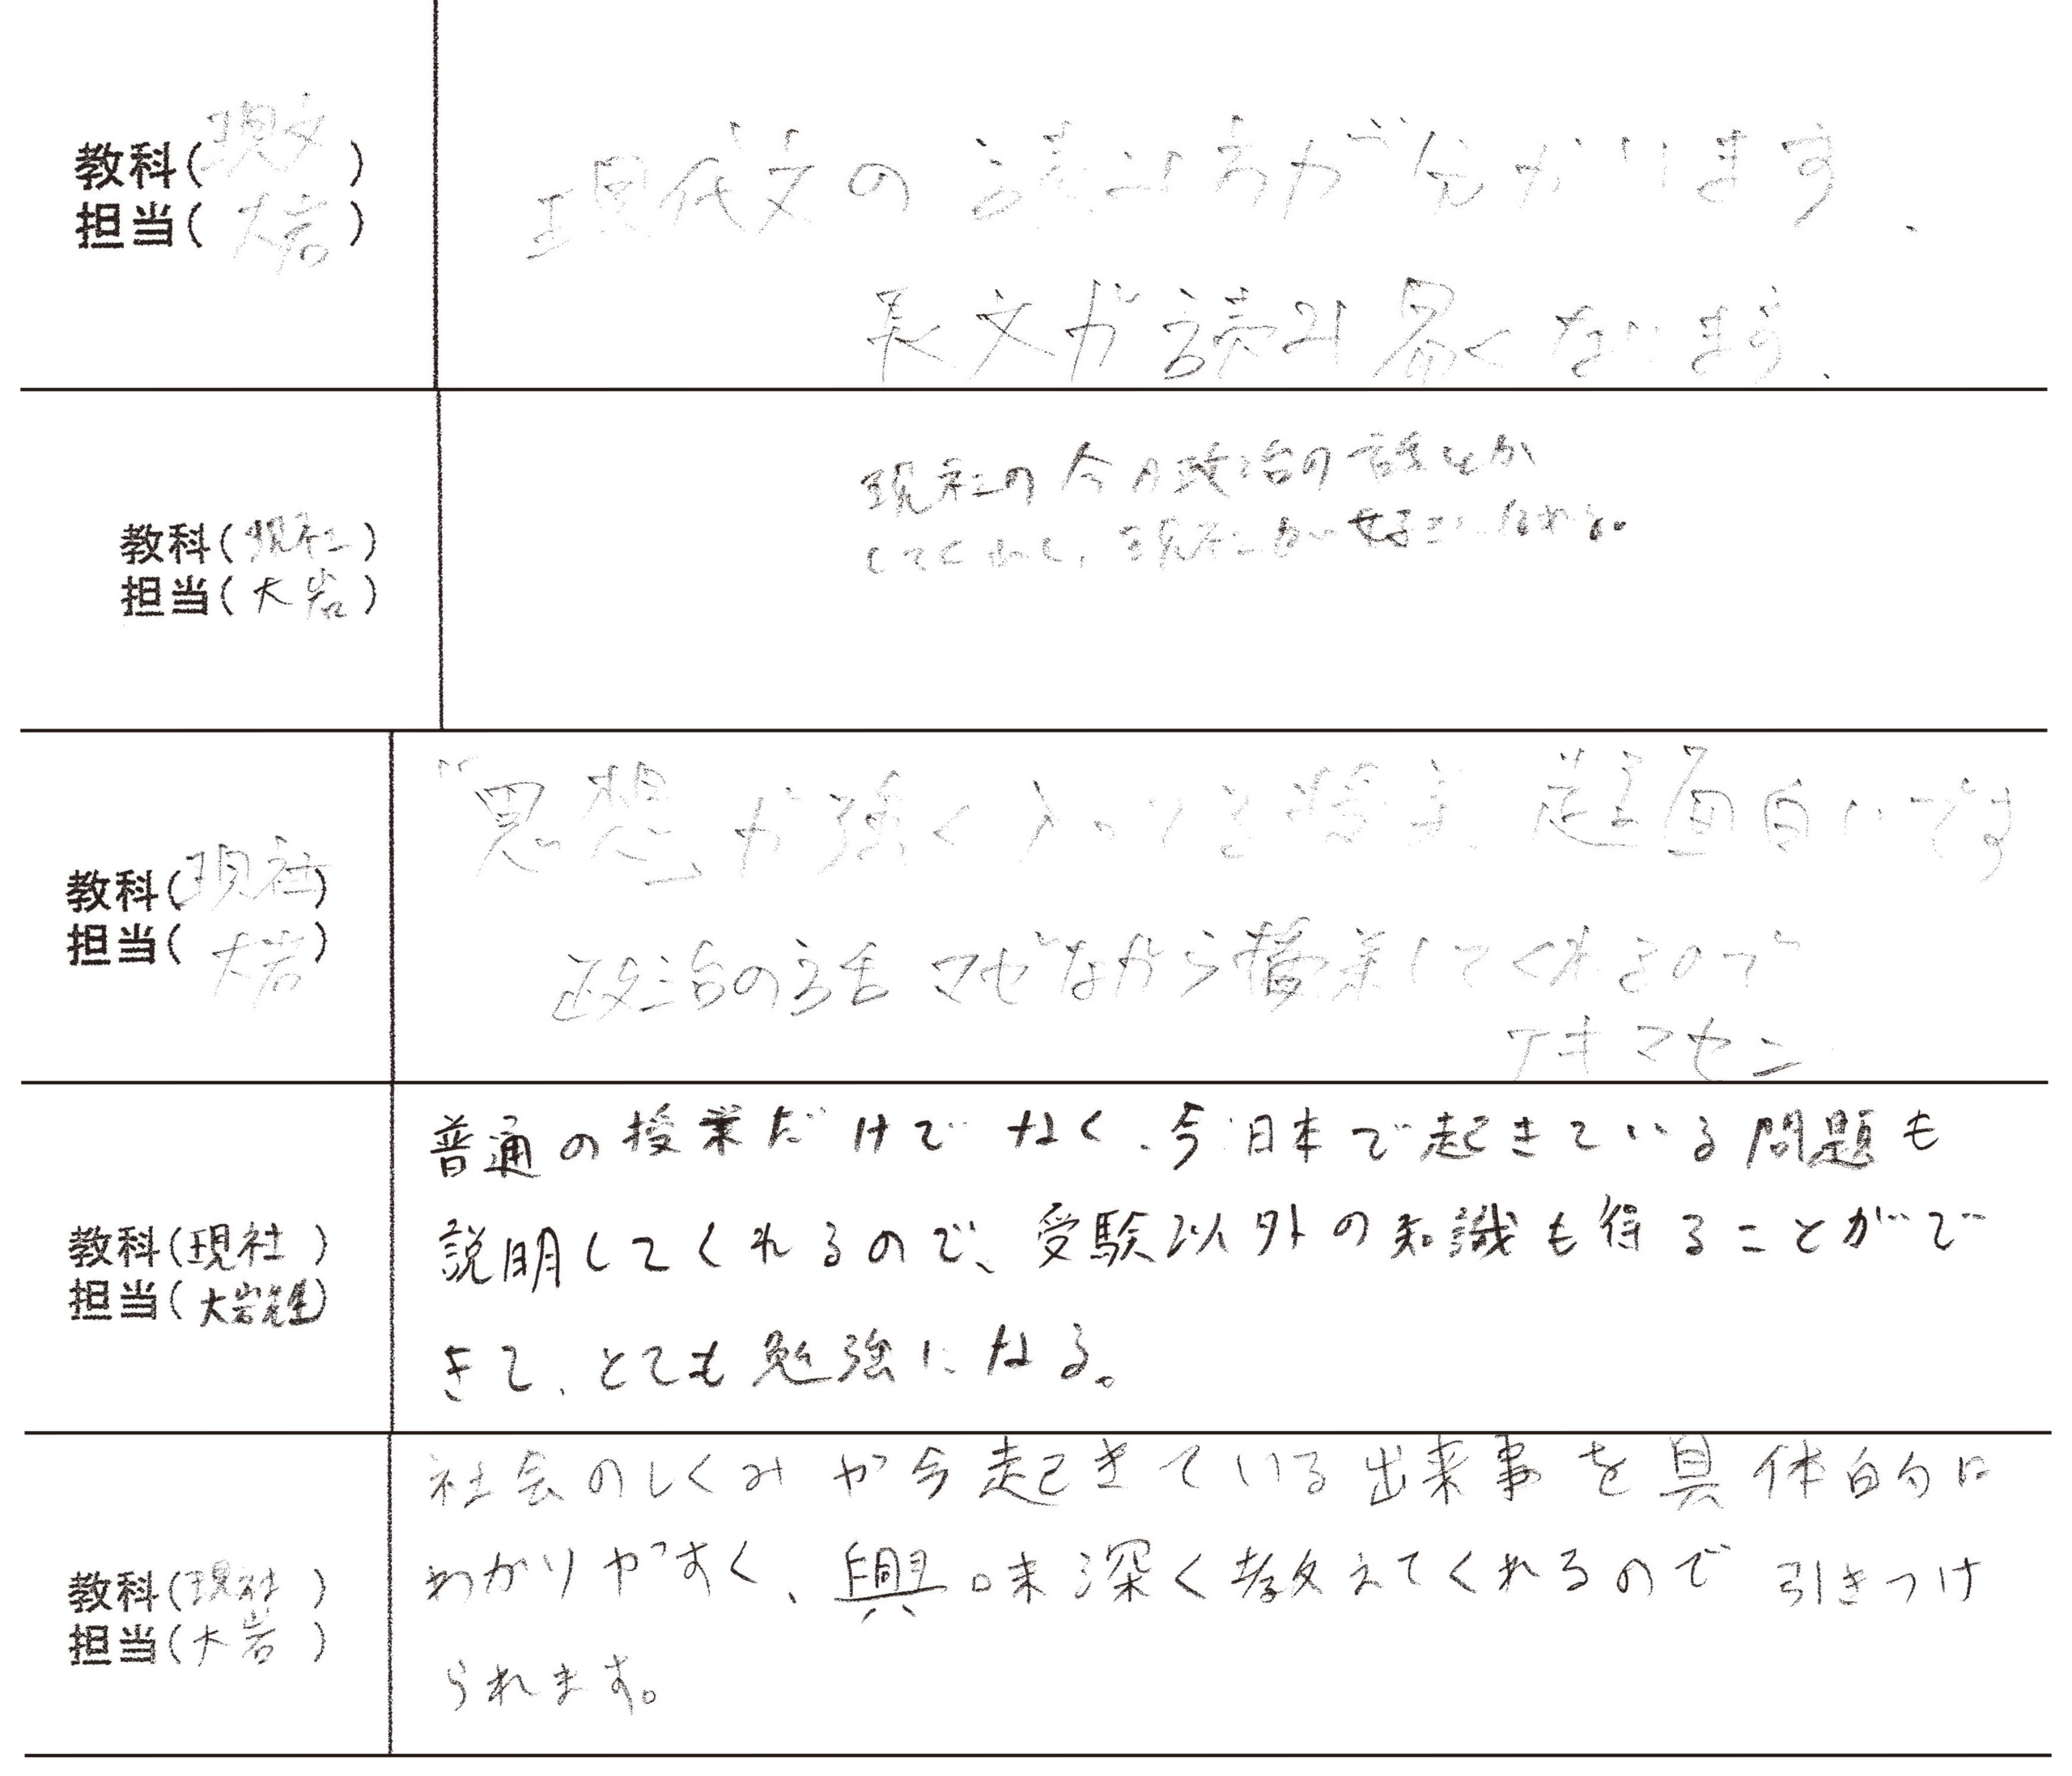 教科(現文)
担当(大岩)
現代文の読み方が分かります.
長文が読み易くなります.
教科(現社)
担当(大岩)
現社の今の政治の話とか
してくれるし、現社も好きになれる。
教科(現社)
担当(大岩)
"思想"が強く入ってる授業 超面白いです
政治の話マゼながら授業してくれるので
アキマセン
教科(現社)
担当(大岩先生)
普通の授業だけでなく、今日本で起きている問題も
説明してくれるので、受験以外の知識も得ることがで
きて、とても勉強になる。
教科(現社)
担当(大岩)
社会のしくみや今起きている出来事を具体的に
わかりやすく、興味深く教えてくれるので引きつけ
られます。